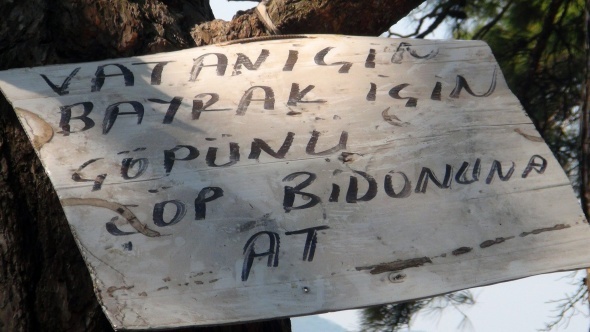 VATAN IÇİN
BAYRAK İÇİN
ÇÖPÜNÜ
ÇÖP BİDONUNA
AT